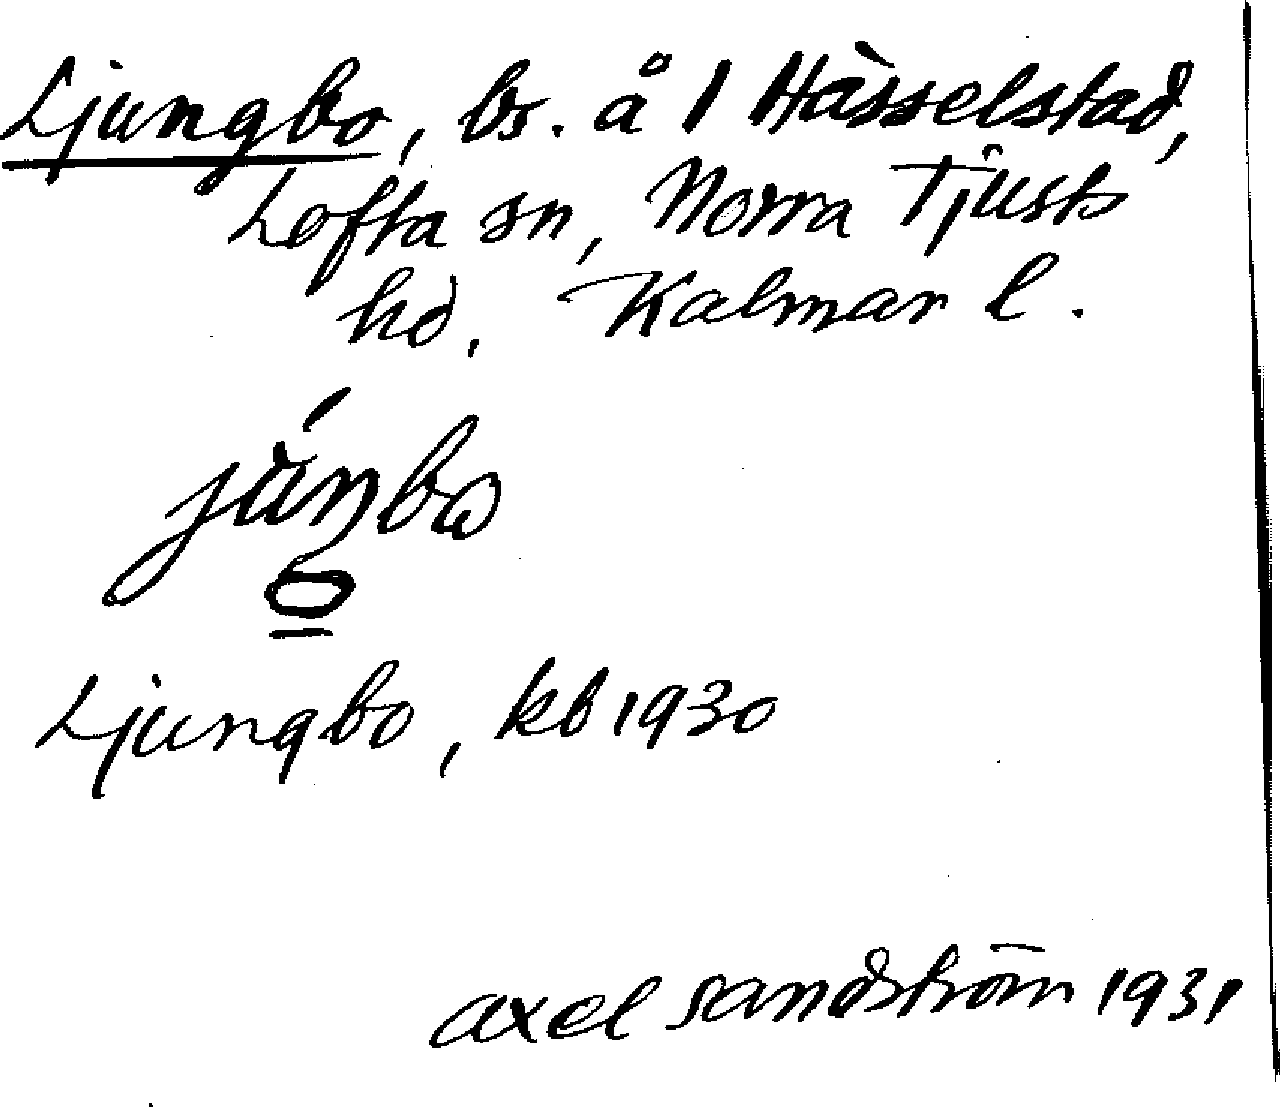 Ljungbo, bs. å 1 Hässelstad,
Lofta sn, Norra Tjusts
hd. Kalmar l.
Ljungbo, kb 1930
axel sandström 1931